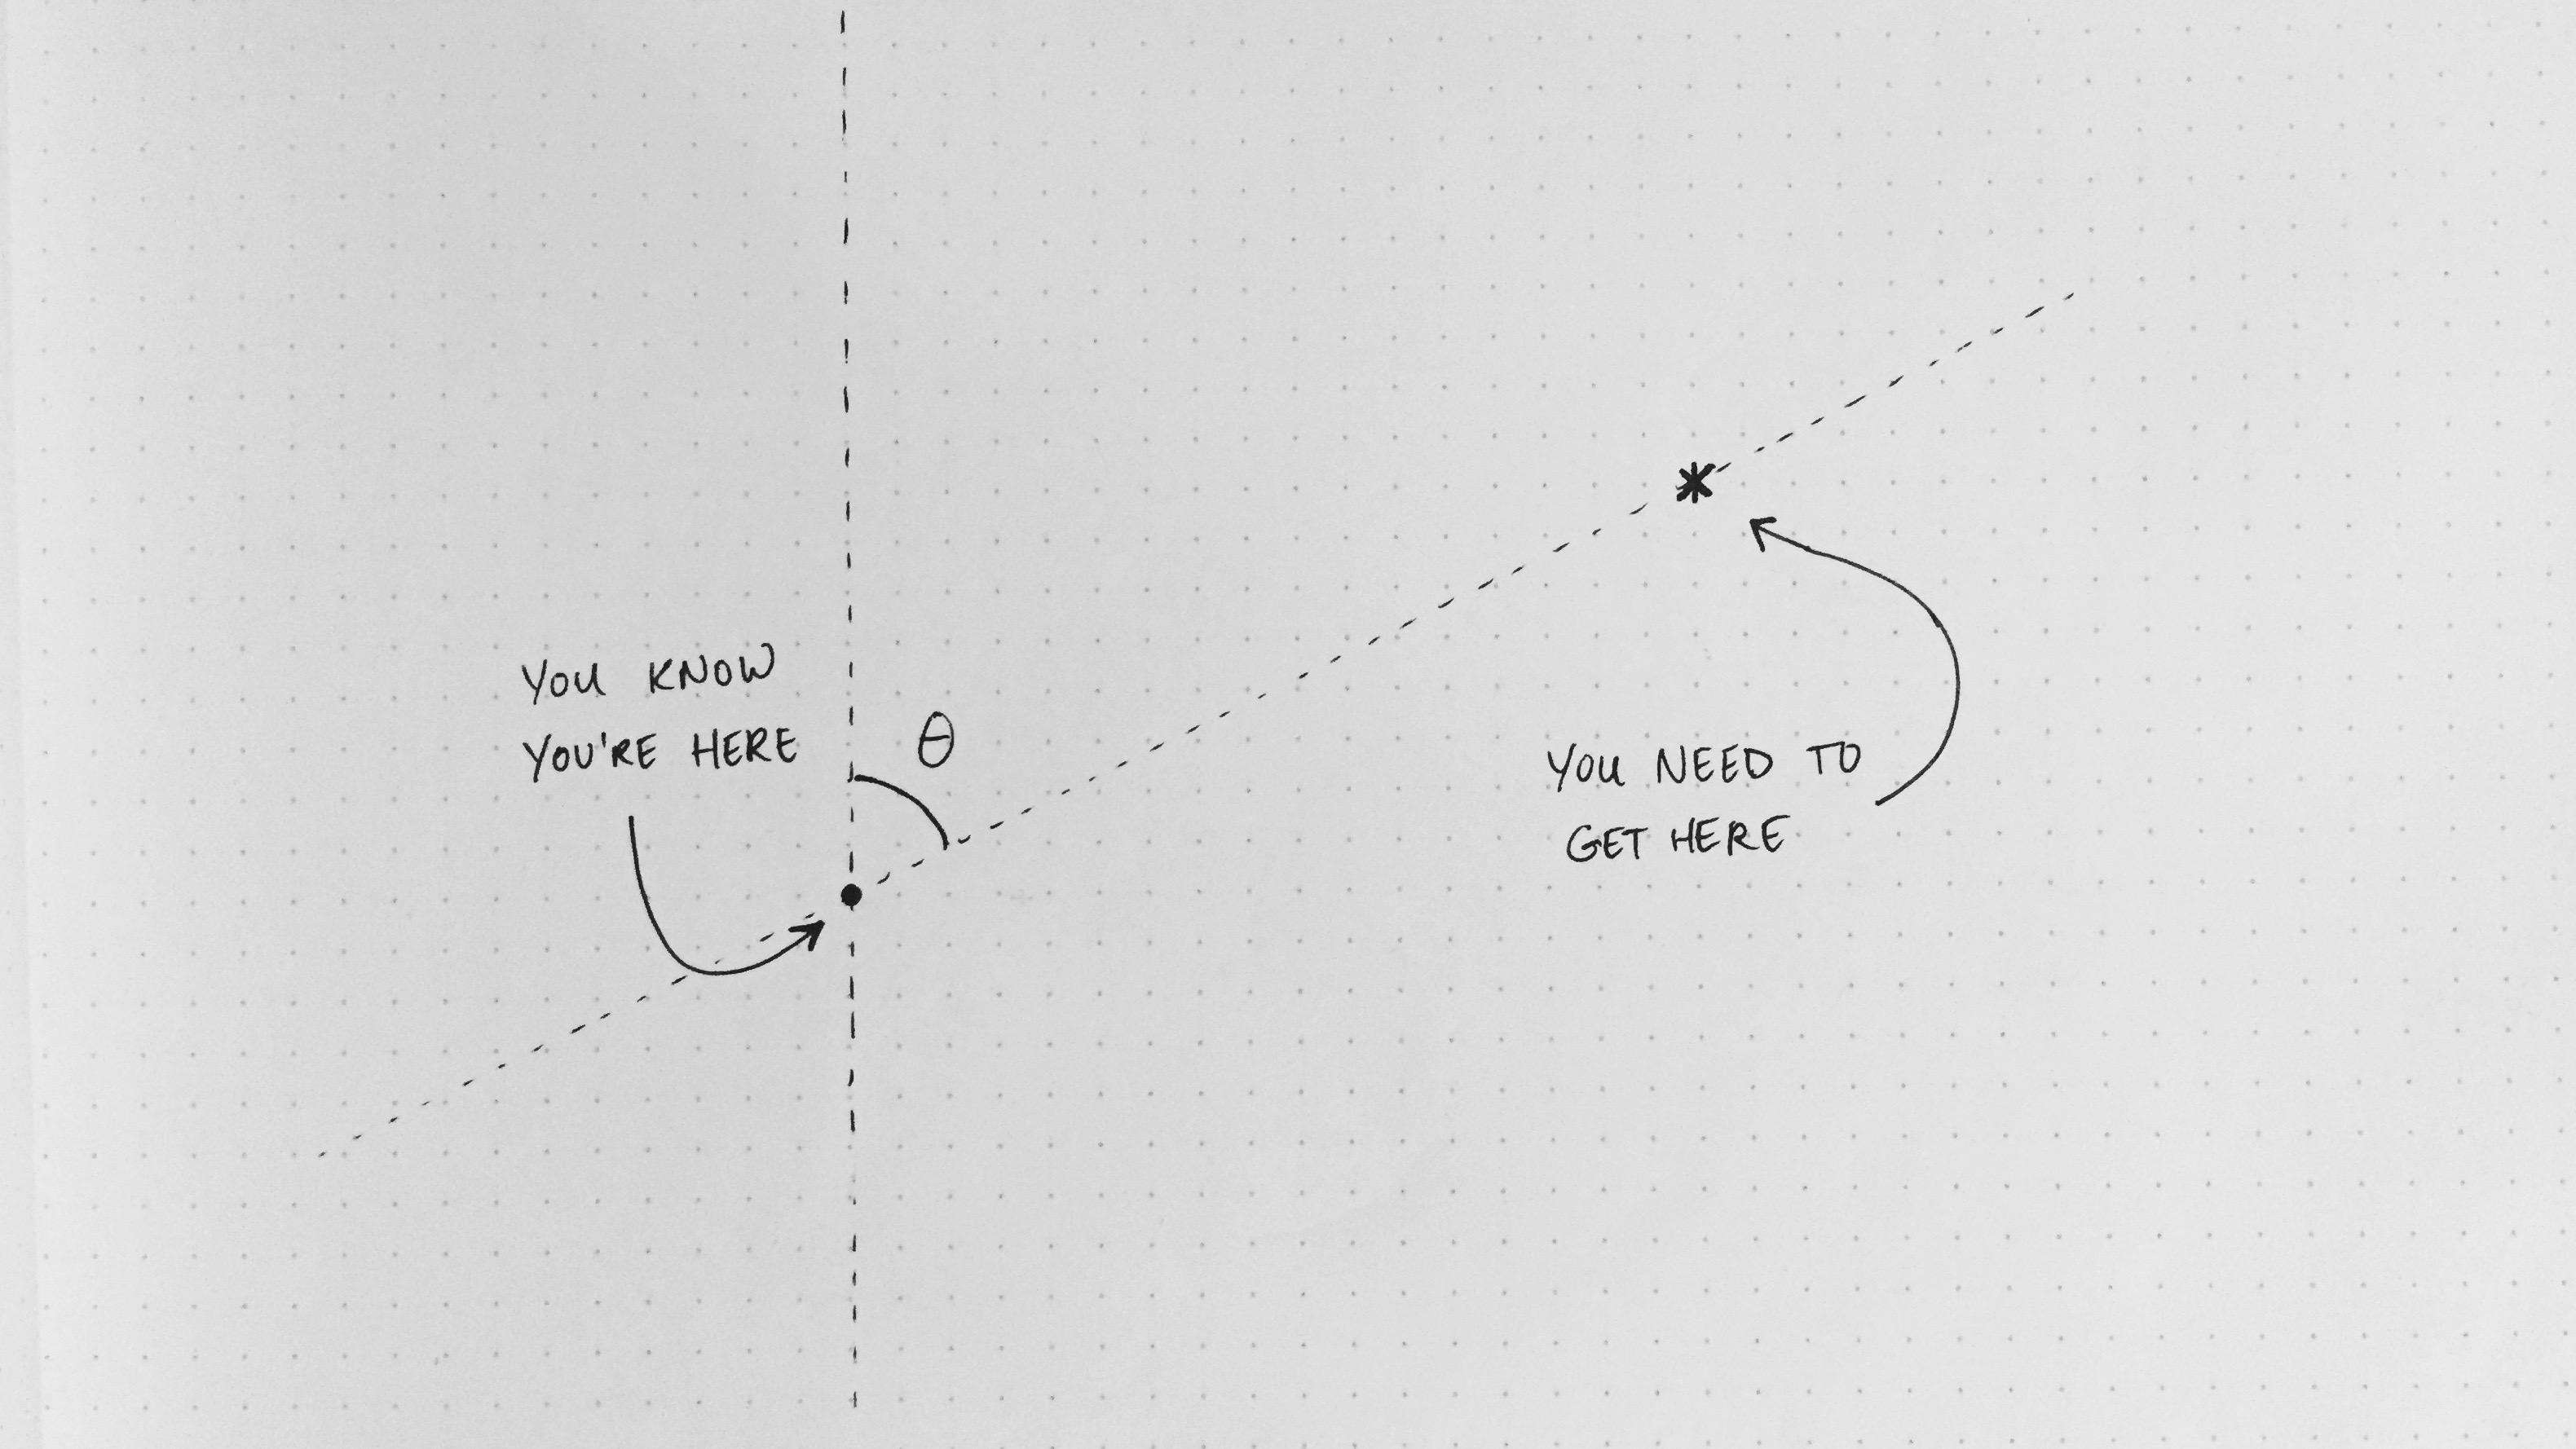 YOU KNOW
YOU'RE HERE
θ
YOU NEED TO
GET HERE